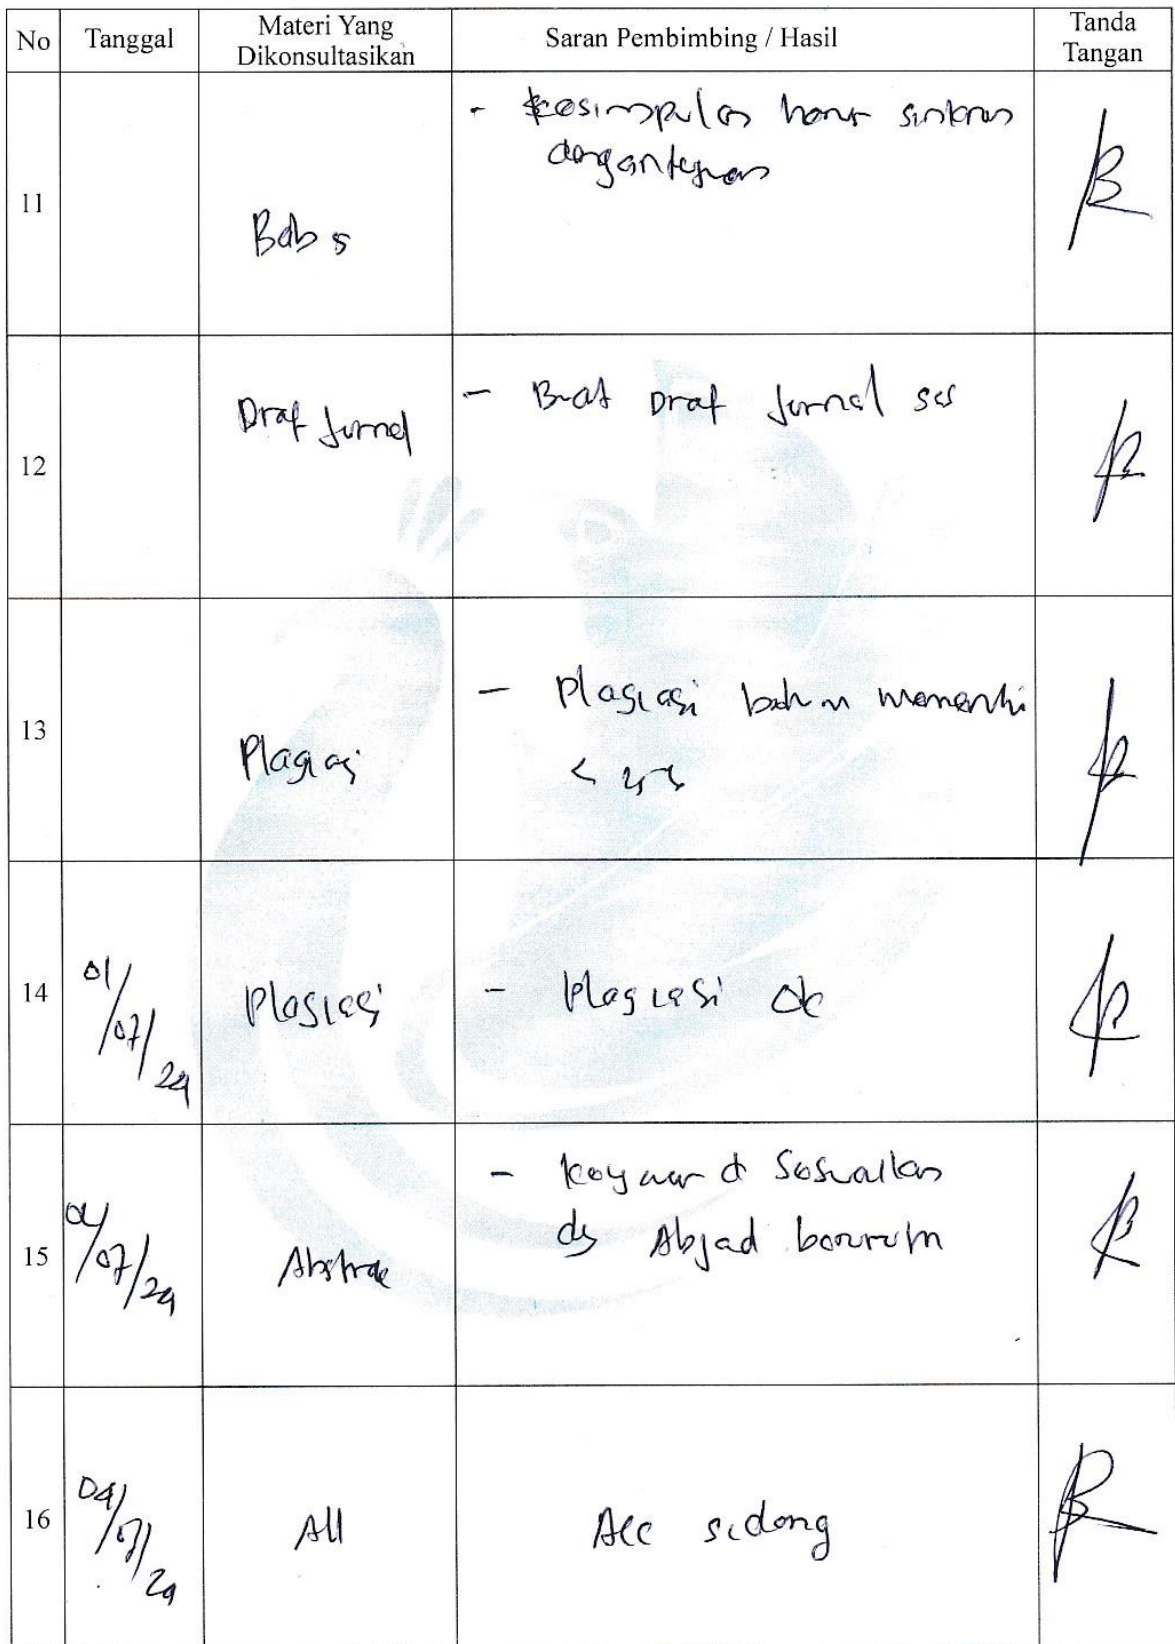 No Tanggal Materi Yang Dikonsultasikan Saran Pembimbing / Hasil Tanda Tangan
11
Bab 5
- Kesimpulan harus sinkron
dengan tujuan
12
Draf Jurnal
- Buat Draf Jurnal
13
Plagiasi
- Plagiasi belum memenuhi
<
14
01/07/24
Plagiasi
- Plagiasi Ok
15
07/24
Abstrak
- Keyword Sesuaikan
dg Abjad
16
04/07/24
All
Acc sidang